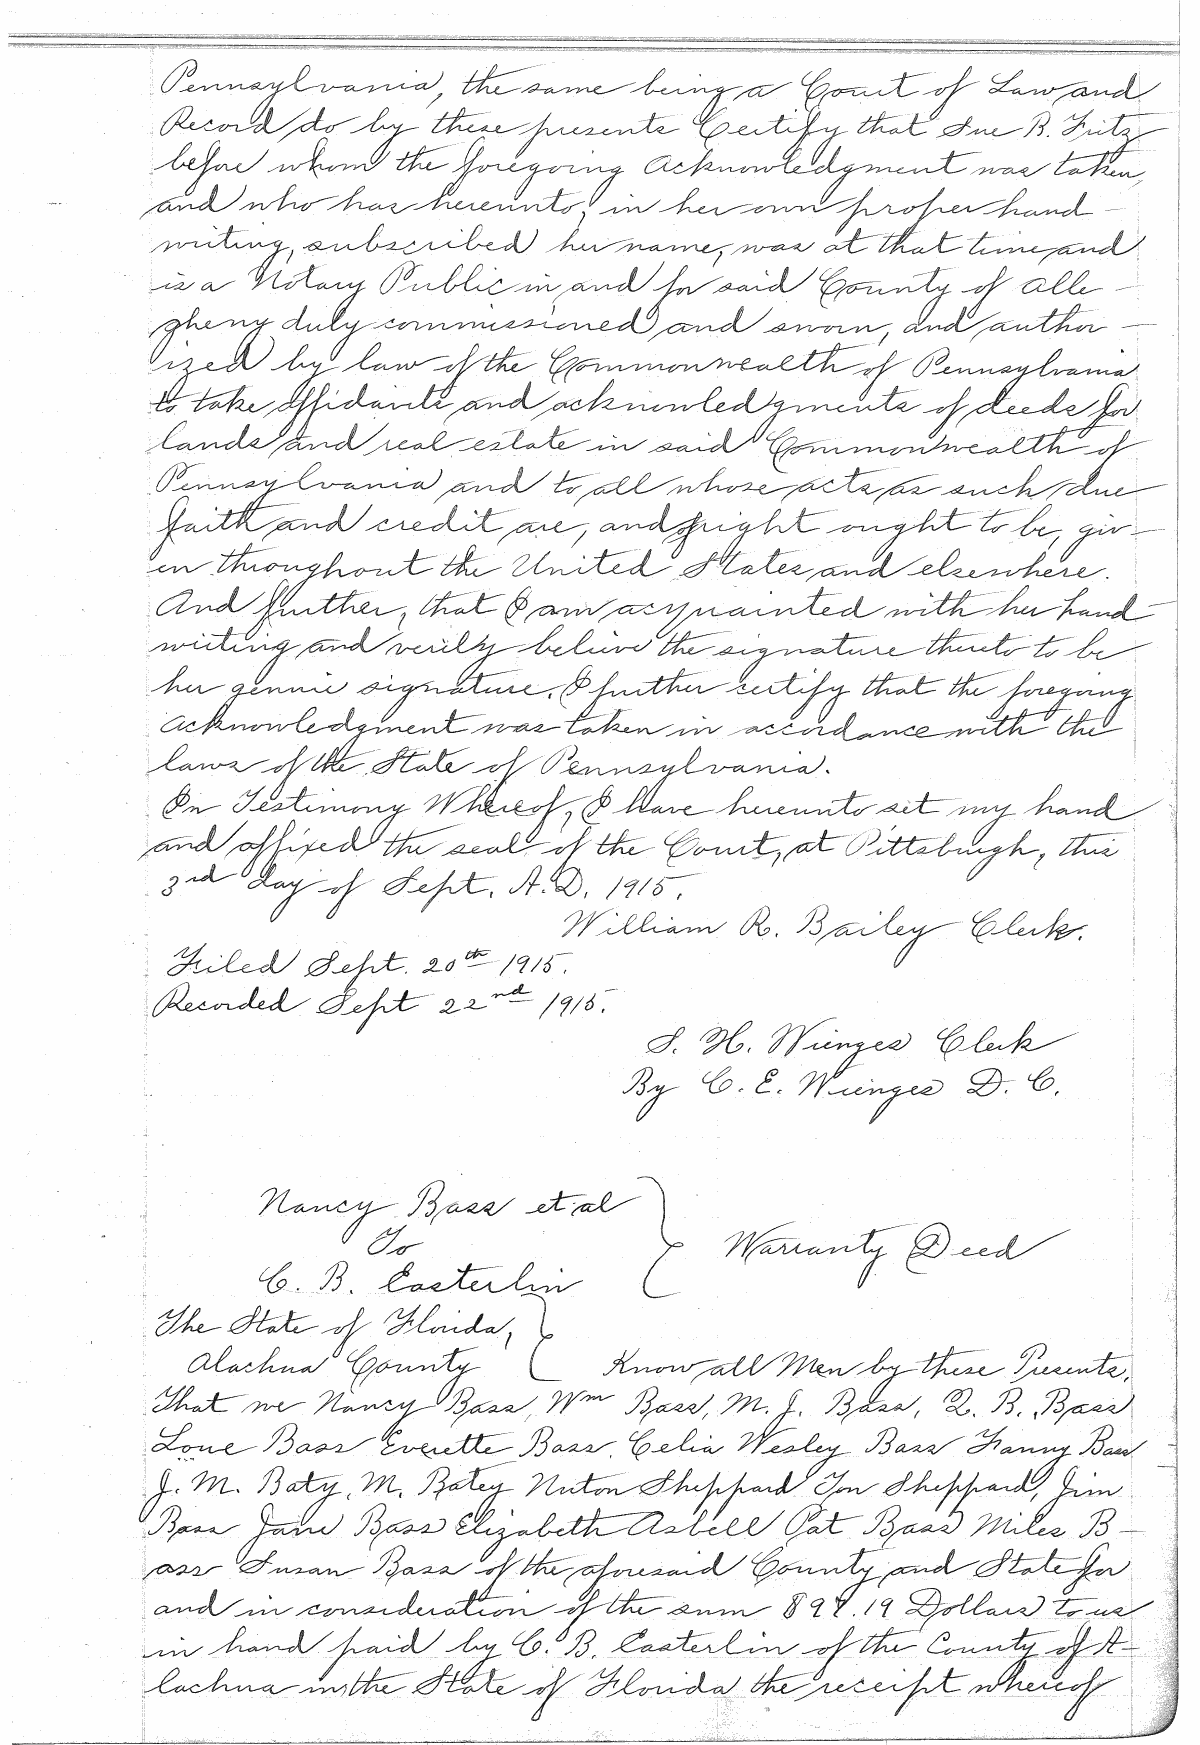 Pennsylvania, the same being a Court of Law and
Record do by these presents Certify that Sue B. Fritz
before whom the foregoing acknowledgment was taken,
and who has hereunto, in her own proper hand-
writing, subscribed her name, was at that time and
is a Notary Public in and for said County of Alle-
gheny duly commissioned and sworn, and author-
ized by law of the Commonwealth of Pennsylvania
to take affidavits and acknowledgments of deeds for
lands and real estate in said Commonwealth of
Pennsylvania and to all whose acts as such due
faith and credit are, and of right ought to be, giv-
en throughout the United States and elsewhere.
And further, that I am acquainted with her hand-
writing and verily believe the signature thereto to be
her gennie signature. I further certify that the foregoing
acknowledgment was taken in accordance with the
laws of the State of Pennsylvania.
In Testimony Whereof, I have hereunto set my hand
and affixed the seal of the Court, at Pittsburgh, this
3rd day of Sept. A.D. 1915.
William R. Bailey Clerk.
Filed Sept. 20th 1915.
Recorded Sept 22nd 1915.
S. H. Wienges Clerk
By C. E. Wienges D. C.
Nancy Bass et al
To
C. B. Easterlin
Warranty Deed
The State of Florida,
Alachua County
Know all Men by these Presents,
That we Nancy Bass, Wm Bass, M. J. Bass, Q. B. Bass
Bass Everette Bass, Celia Wesley Bass Fanny Bass
J. M. Baty, M. Batey Sheppard Sheppard, Jim
Bass Jane Bass Elizabeth Asbell Pat Bass Miles B-
ass Susan Bass of the aforesaid County and State for
and in consideration of the sum Dollars to us
in hand paid by C. B. Easterlin of the County of A-
lachua in the State of Florida the receipt whereof